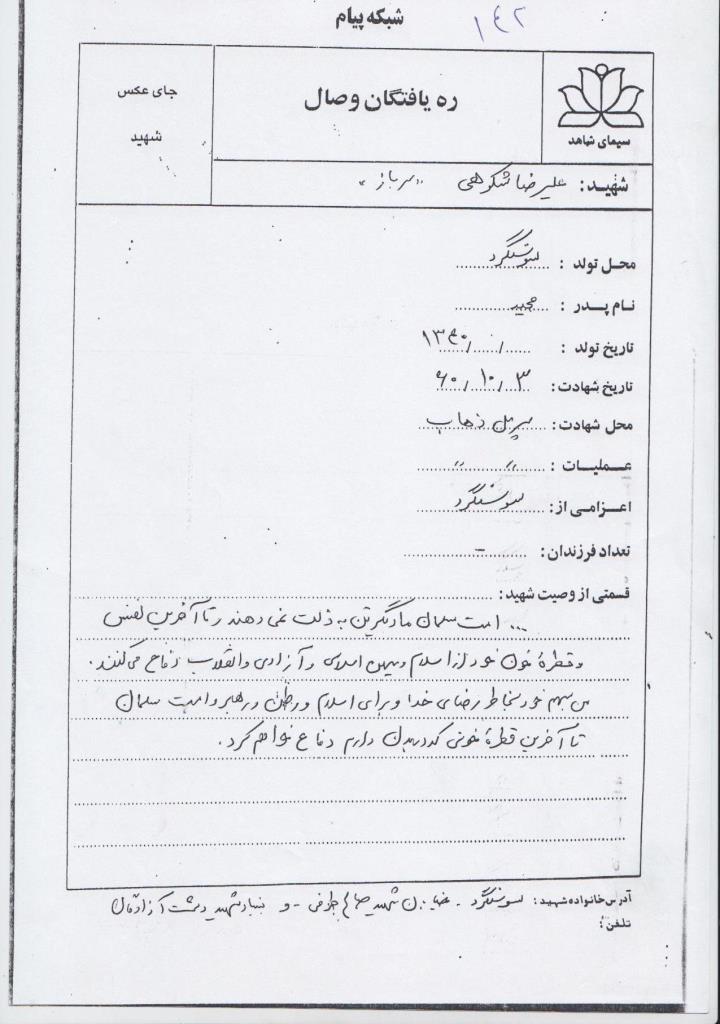 شبکه پیام
۱۴۲
سیمای شاهد
ره یافتگان وصال
جای عکس
شهید
شهید: علیرضا شکوهی "سرباز"
محل تولد: سوسنگرد
نام پدر: مجید
تاریخ تولد: / / ۱۳۴۰
تاریخ شهادت: ۳ / ۱۰ / ۶۰
محل شهادت: سرپل ذهاب
عملیات: " "
اعزامی از: سوسنگرد
تعداد فرزندان: -
قسمتی از وصیت شهید:
... امت مسلمان ما دیگر تن به ذلت نمی دهند و تا آخرین نفس
و قطرهٔ خون خود از اسلام و میهن اسلامی و آزادی و انقلاب دفاع می کنند.
من سهم خود بخاطر رضای خدا و برای اسلام و وطن و رهبر و امت مسلمان
تا آخرین قطرهٔ خونی که در بدن دارم دفاع خواهم کرد.
آدرس خانواده شهید: سوسنگرد - خیابان شهید - و بنیاد شهید دشت آزادگان
تلفن: